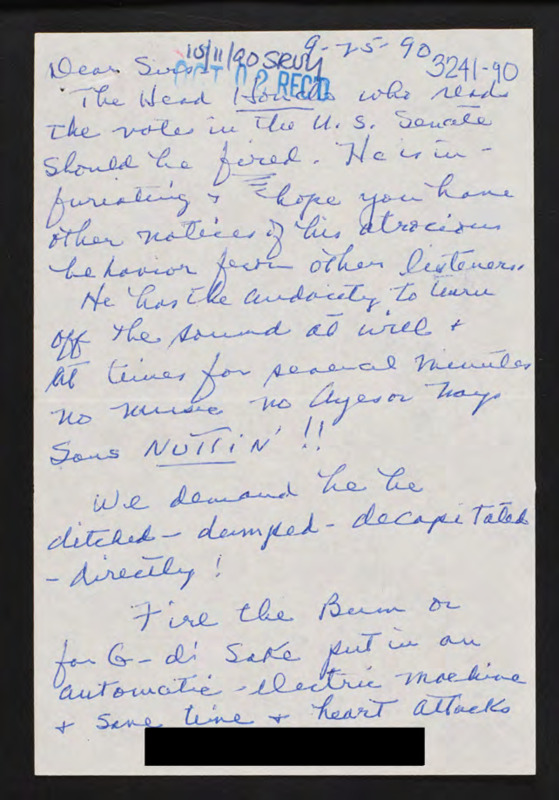 9-25-90
10/11/90 SRVY
3241-90
OCT 02 REC'D
Dear Sirs -
The Head Honcho who reads
the votes in the U. S. Senate
Should be fired. He is in -
furiating & hope you have
other notices of his atrocious
behavior from other listeners
He has the audacity to turn
off the sound at will +
At times for several minutes
no music no Ayes or Nays
Sans NUTTIN' !!
We demand he be
ditched - dumped - decapitated
- directly !
Fire the Bum or
for G-d's Sake put in an
automatic - electric machine
+ save time + heart attacks